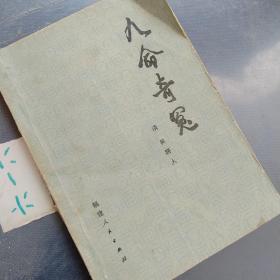 九命奇冤
清 吴趼人
福建人民出版社